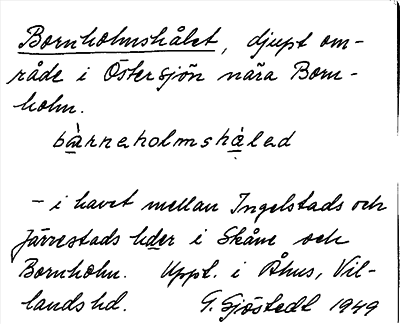 Bornholmshålet, djupt om-
råde i Östersjön nära Born-
holm.
bàrnahol​mshålad
– i havet mellan Ingelstads och
Järrestads hder i Skåne och
Bornholm. Uppt. i Åhus, Vil-
lands hd. G. Sjöstedt 1949